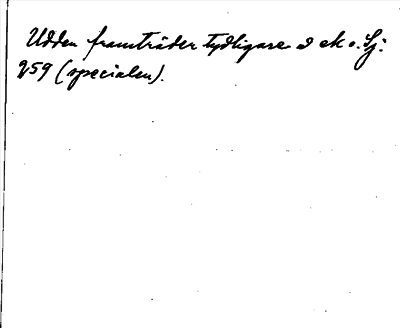 Udden framträder tydligare å ek o. Sj:
259 (specialen).